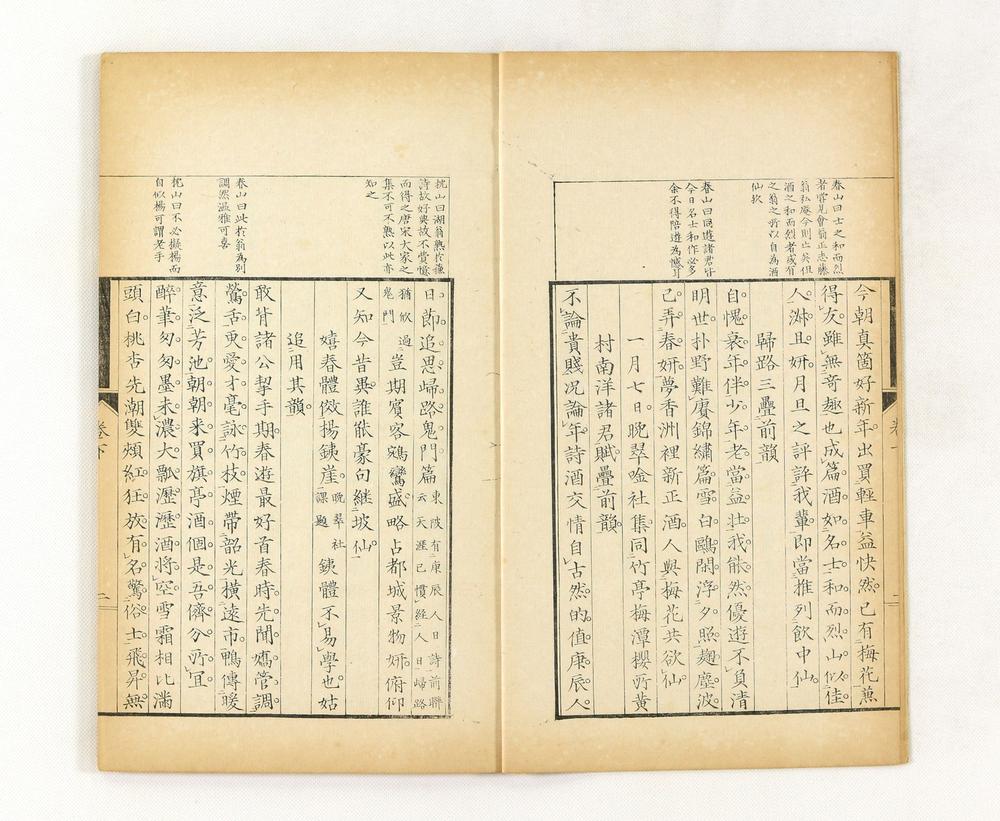 春山曰士之和而烈
者嘗見會翁正志藤
翁私淑今則亡矣但
酒之和而烈者或有
之翁之所以自為酒
仙歟
春山曰同遊諸君皆
今日名士和作必多
余不得陪遊為憾耳
今朝真箇好新年出買輕車益快然已有梅花薫
得友雖無奇趣也成篇酒如名士和而烈山似佳
人淑且妍月旦之評評我輩即當推列飲中仙
歸路三疊前韻
自愧衰年伴少年老當益壯我能然優遊不負清
明世朴野難賡錦繡篇雪白鷗閑浮夕照麴塵波
己弄春妍夢香洲裡新正酒人與梅花共欲仙
一月七日晚翠唫社集同竹亭梅潭櫻所黃
村南洋諸君賦疊前韻
不論貴賤況論年詩酒交情自古然的值庚辰人
枕山曰湖翁熟於蘇
詩故好奕故不賞憶
而得之唐宋大家之
集不可不熟以此亦
知之
春山曰此於翁為別
調然溫雅可喜
枕山曰不必擬楊而
自似楊可謂老手
日節追思歸路鬼門篇東坡有庚辰人日詩前聯
云天涯已慣經人日歸路
猶欣過
鬼門豈期賓客鵷鸞盛略占都城景物妍俯仰
又知今昔異誰能豪句繼坡仙
嬉春體傚楊鐵崖晚翠社
課題鐵體不易學也姑
追用其韻
敢背諸公挈手期春遊最好首春時先聞嬌管調
鶯舌更愛才毫詠竹枝煙帶韶光橫遠市鴨傳暖
意泛芳池朝朝來買旗亭酒個是吾儕分所宜
醉筆匆匆墨未濃大瓢瀝瀝酒將空雪霜相比滿
頭白桃杏先潮雙頰紅狂放有名驚俗士飛昇無
卷下
二